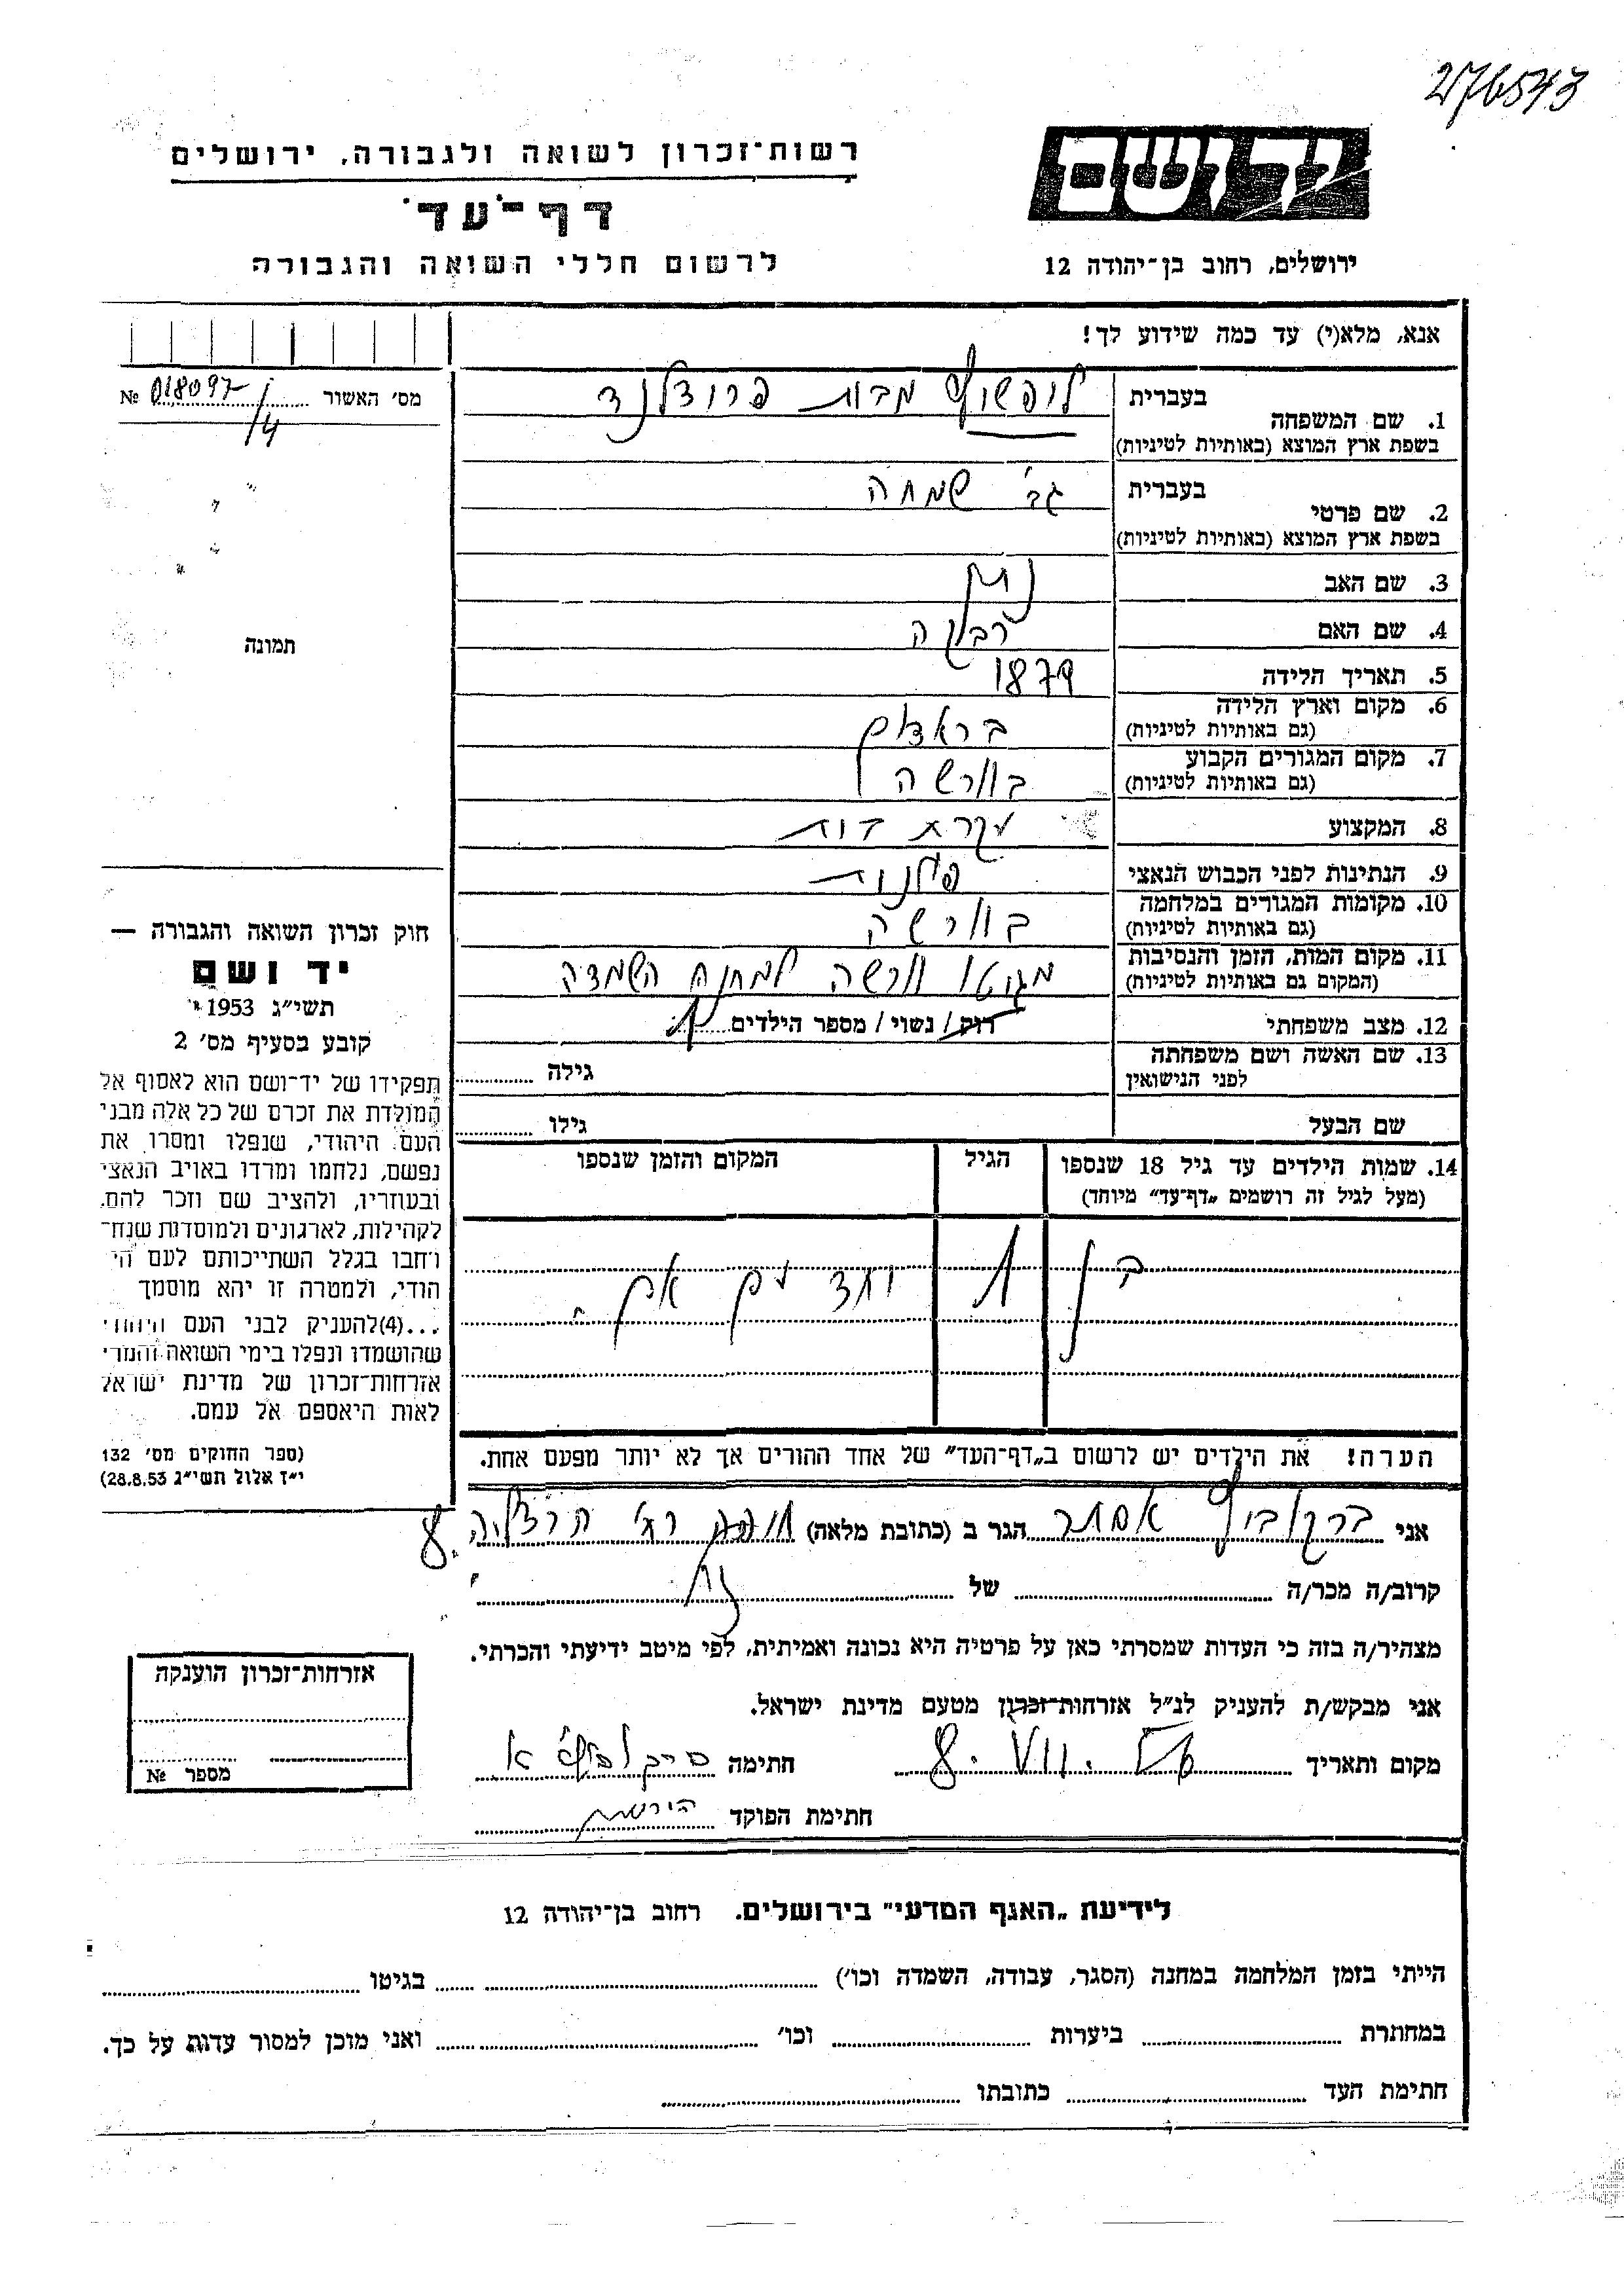 276543
רשות־זכרון לשואה ולגבורה, ירושלים
יד ושם
דף־עד
לרשום חללי השואה והגבורה
ירושלים, רחוב בן־יהודה 12
אנא, מלא(י) עד כמה שידוע לך!
מס׳ האשור 018097/4 №
תמונה
1. שם המשפחה
בעברית ליפשיץ מבית פרידלנד
בשפת ארץ המוצא (באותיות לטיניות)
2. שם פרטי
בעברית גב׳ שמחה
בשפת ארץ המוצא (באותיות לטיניות)
3. שם האב
4. שם האם רבקה
5. תאריך הלידה 1879
6. מקום וארץ הלידה
(גם באותיות לטיניות)
7. מקום המגורים הקבוע בוורשה
(גם באותיות לטיניות)
8. המקצוע עקרת בית
9. הנתינות לפני הכבוש הנאצי פולנית
10. מקומות המגורים במלחמה בוורשה
(גם באותיות לטיניות)
11. מקום המות, הזמן והנסיבות מגטו וורשה למחנה השמדה
(המקום גם באותיות לטיניות)
12. מצב משפחתי רוק / נשוי / מספר הילדים 1
13. שם האשה ושם משפחתה
לפני הנישואין
גילה
שם הבעל גילו
14. שמות הילדים עד גיל 18 שנספו
(מעל לגיל זה רושמים „דף־עד״ מיוחד)
הגיל
המקום והזמן שנספו
בן 1 יחד עם אם.
הערה! את הילדים יש לרשום ב„דף־העד״ של אחד ההורים אך לא יותר מפעם אחת.
חוק זכרון השואה והגבורה —
יד ושם
תשי״ג 1953
קובע בסעיף מס׳ 2
תפקידו של יד־ושם הוא לאסוף אל
המולדת את זכרם של כל אלה מבני
העם היהודי, שנפלו ומסרו את
נפשם, נלחמו ומרדו באויב הנאצי
ובעוזריו, ולהציב שם וזכר להם,
לקהילות, לארגונים ולמוסדות שנח־
רבו בגלל השתייכותם לעם הי
הודי, ולמטרה זו יהא מוסמך
...(4)להעניק לבני העם היהודי
שהושמדו ונפלו בימי השואה והמרי
אזרחות־זכרון של מדינת ישראל
לאות היאספם אל עמם.
(ספר החוקים מס׳ 132
י״ז אלול תשי״ג 28.8.53)
אני ברקוביץ אסתר הגר ב (כתובת מלאה) חיפה רח׳ הרצליה 8.
קרוב/ה מכר/ה של
מצהיר/ה בזה כי העדות שמסרתי כאן על פרטיה היא נכונה ואמיתית, לפי מיטב ידיעתי והכרתי.
אני מבקש/ת להעניק לנ״ל אזרחות־זכרון מטעם מדינת ישראל.
מקום ותאריך 8. VII. חתימה ברקוביץ א
חתימת הפוקד
אזרחות־זכרון הוענקה
מספר №
לידיעת „האגף המדעי״ בירושלים. רחוב בן־יהודה 12
הייתי בזמן המלחמה במחנה (הסגר, עבודה, השמדה וכו׳) בגיטו
במחתרת ביערות וכו׳ ואני מוכן למסור עדות על כך.
חתימת העד כתובתו